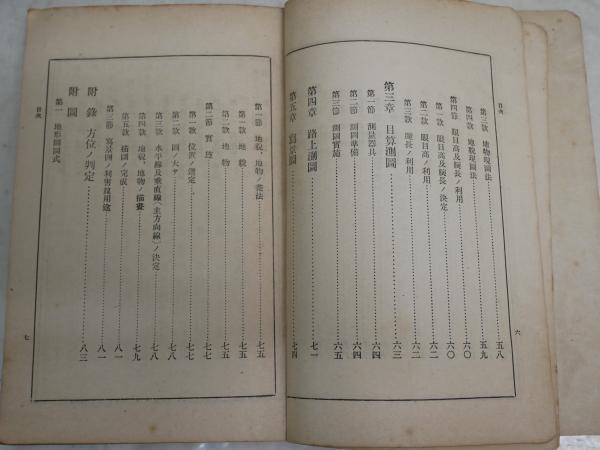 目次
第三款 地物現圖法………五八
第四款 地貌現圖法………五九
第四節 眼目高及腕長ノ利用………六〇
第一款 眼目高及腕長ノ決定………六〇
第二款 眼目高ノ利用………六二
第三款 腕長ノ利用………六二
第三章 目算測圖………六三
第一節 測量器具………六四
第二節 測圖準備………六四
第三節 測圖實施………六五
第四章 路上測圖………七一
第五章 寫景圖………七四
六
第一節 地貌、地物ノ畫法………七五
第一款 地貌………七五
第二款 地物………七五
第二節 實施………七七
第一款 位置ノ選定………七七
第二款 圖ノ大サ………七八
第三款 水平線及垂直線(主方向線)ノ決定………七八
第四款 地貌、地物ノ描畫………七九
第五款 描圖ノ完成………八一
第三節 寫景圖ノ利害及用途………八一
附錄 方位ノ判定………八三
附圖
第一 地形圖圖式
目次
七